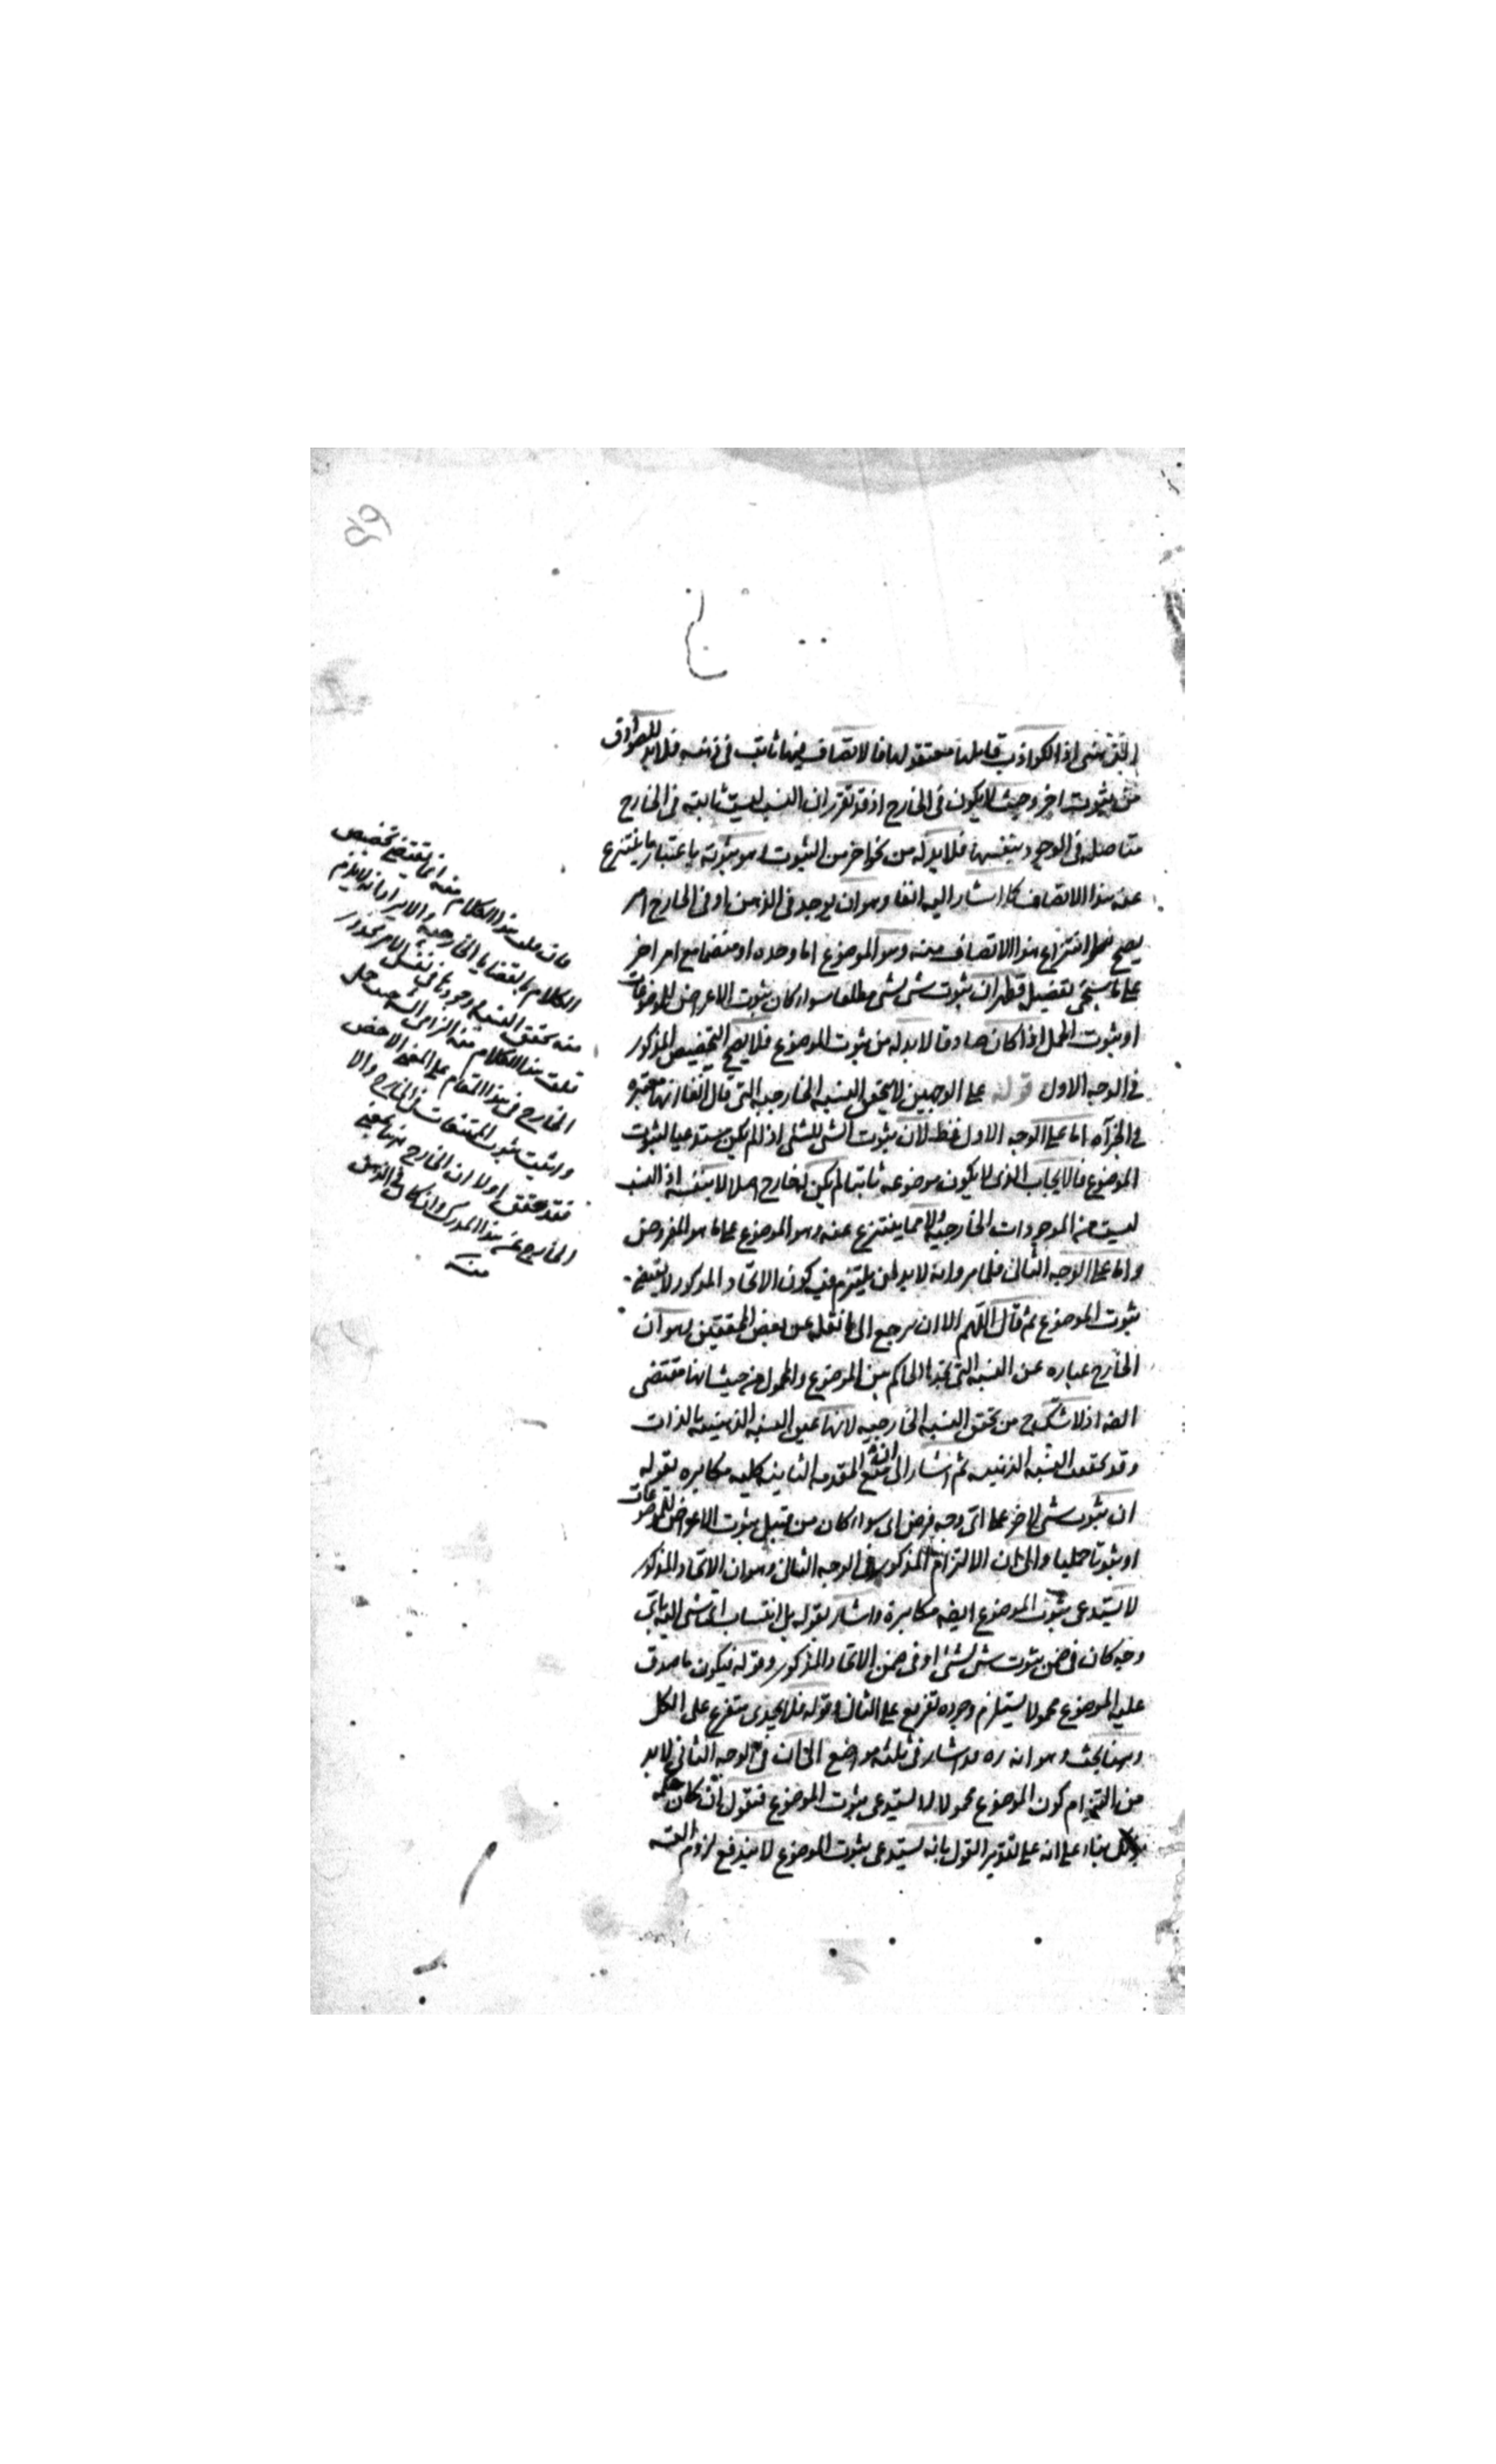 الذهنى اذ الكواذب قاطبتها معتقولها فالاتصاف فيها ثابت فى نفسه فلابد للصوادق
من ثبوت اخر وحيث لا يكون فى الخارج اذ قد تقرر ان النسب ليست ثابته فى الخارج
متاصله فى الوجود بنفسها فلابد له من نحو اخر من الثبوت وهو ثبوته باعتبار ما ينتزع
عنه هذا الاتصاف كما اشار اليه انفا وهو ان يوجد فى الذهن او فى الخارج امر
يصح انتزاع هذا الاتصاف منه وهو الموضوع اما وحده او منضما مع امر اخر
على ما سيجئ تفصيله فظهر ان ثبوت شئ لشئ مطلقا سواء كان ثبوت الاعراض للموضوعات
او ثبوت الحمل اذا كان صادقا لابد له من ثبوت الموضوع فلا يصح التخصيص المذكور
فى الوجه الاول قوله على الوجهين لا يتحقق النسبه الخارجيه التى قال انفا انها معتبره
فى الجزآه اما على الوجه الاول فقط لان ثبوت الشئ للشئ اذا لم يكن مستدعيا لثبوت
الموضوع فالايجاب الذى لا يكون موضوعه ثابتا لم يكن له خارج اصلا لا بنفسه اذ النسب
ليست من الموجودات الخارجيه ولا مما ينتزع عنه وهو الموضوع على ما هو المفروض
واما على الوجه الثانى فلما مر وانه لابد لمن يلتزم فيه كون الاتحاد المذكور لا يقتضى
ثبوت الموضوع ثم قال اللهم الا ان يرجع الى ما نقله عن بعض المحققين وهو ان
الخارج عباره عن النسبه التى يجدها الحاكم بين الموضوع والمحمول من حيث انها مقتضى
الضه اذ لا شك ح من تحقق النسبه الخارجيه لانها عين النسبه الذهنيه بالذات
وقد تحققت النسبه الذهنيه ثم اشار الى ان منع المقدمه الثانيه كليه مكابره بقوله
ان ثبوت شئ لاخر على اى وجه فرض اى سواء كان من قبيل ثبوت الاعراض للموضوعات
او ثبوتا حمليا والى ان الالتزام المذكور فى الوجه الثانى وهو ان الاتحاد المذكور
لا يستدعى ثبوت الموضوع ايضه مكابرة واشار بقوله بل انتساب اى شئ اليه باى
وجه كان فى ضمن ثبوت شئ لشئ او فى ضمن الاتحاد المذكور وقوله فيكون ما صدق
عليه الموضوع محمولا يستلزم وجوده تفريع على الثانى وقوله فلا يجدى متفرع على الكل
وههنا بحث وهو انه ره قد اشار فى ثلثه مواضع الى ان فى الوجه الثانى لابد
من التزام كون الموضوع محمولا لا يستدعى ثبوت الموضوع فنقول ان كان حكمه
بذلك بناء على انه على تقدير القول بانه يستدعى ثبوت الموضوع لا يندفع لزوم
فان قلت هذا الكلام منه انما يقتضى تخصيص
الكلام بالقضايا الخارجيه والايراد انه لا يلزم
منه تحقق النسبه ووجودها فى نفس الامر محذور
قلت هذا الكلام منه الزامى اليه حيث حمل
الخارج فى هذا المقام على المعنى الاخص
واثبت ثبوت المتنفات فى الخارج والا
فقد حقق اولا ان الخارج ههنا بمعنى
الخارج عن هذا المدرك وان كان فى الذهن
منه